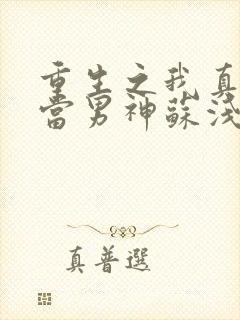 重生之我真
當男神蘇淺
真普選